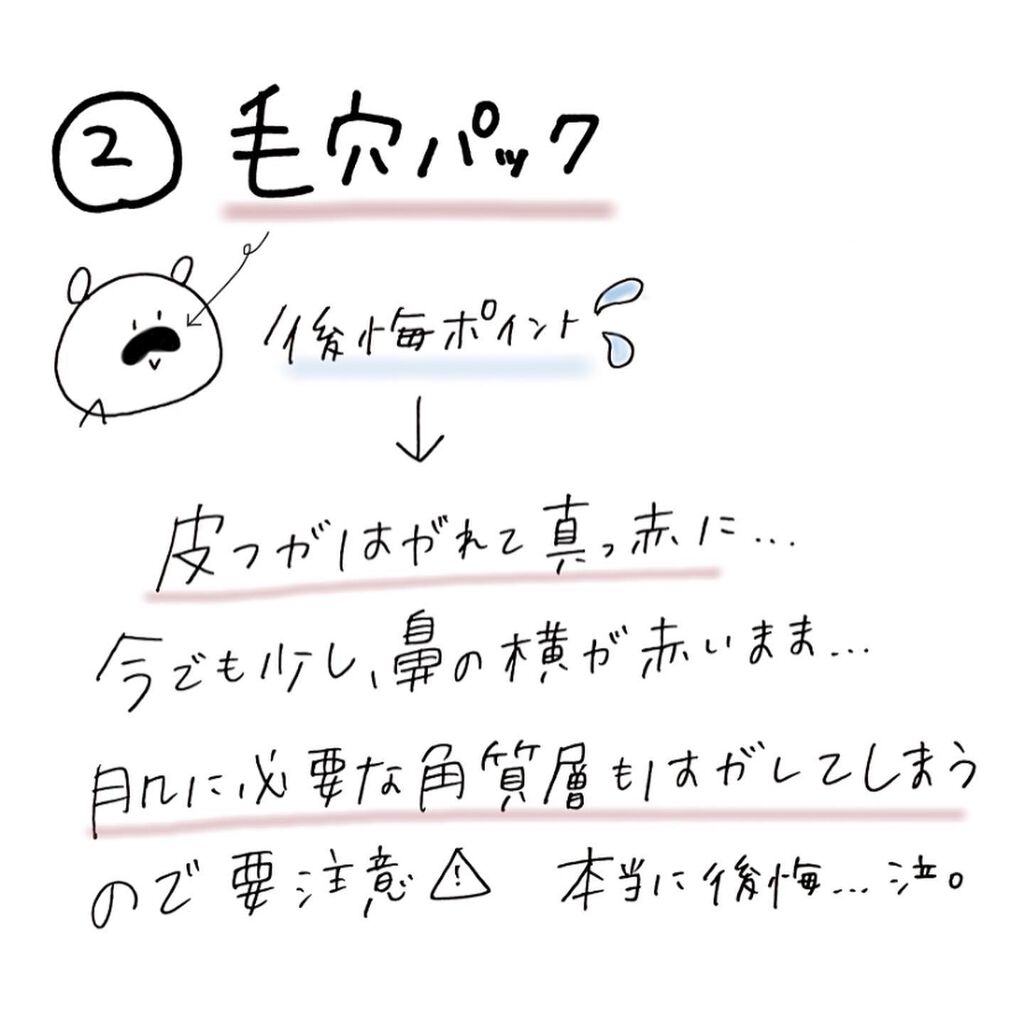 ② 毛穴パック
後悔ポイント
↓
皮フがはがれて真っ赤に...
今でも少し、鼻の横が赤いまま...
肌に必要な角質層もはがしてしまう
ので要注意⚠ 本当に後悔...泣。